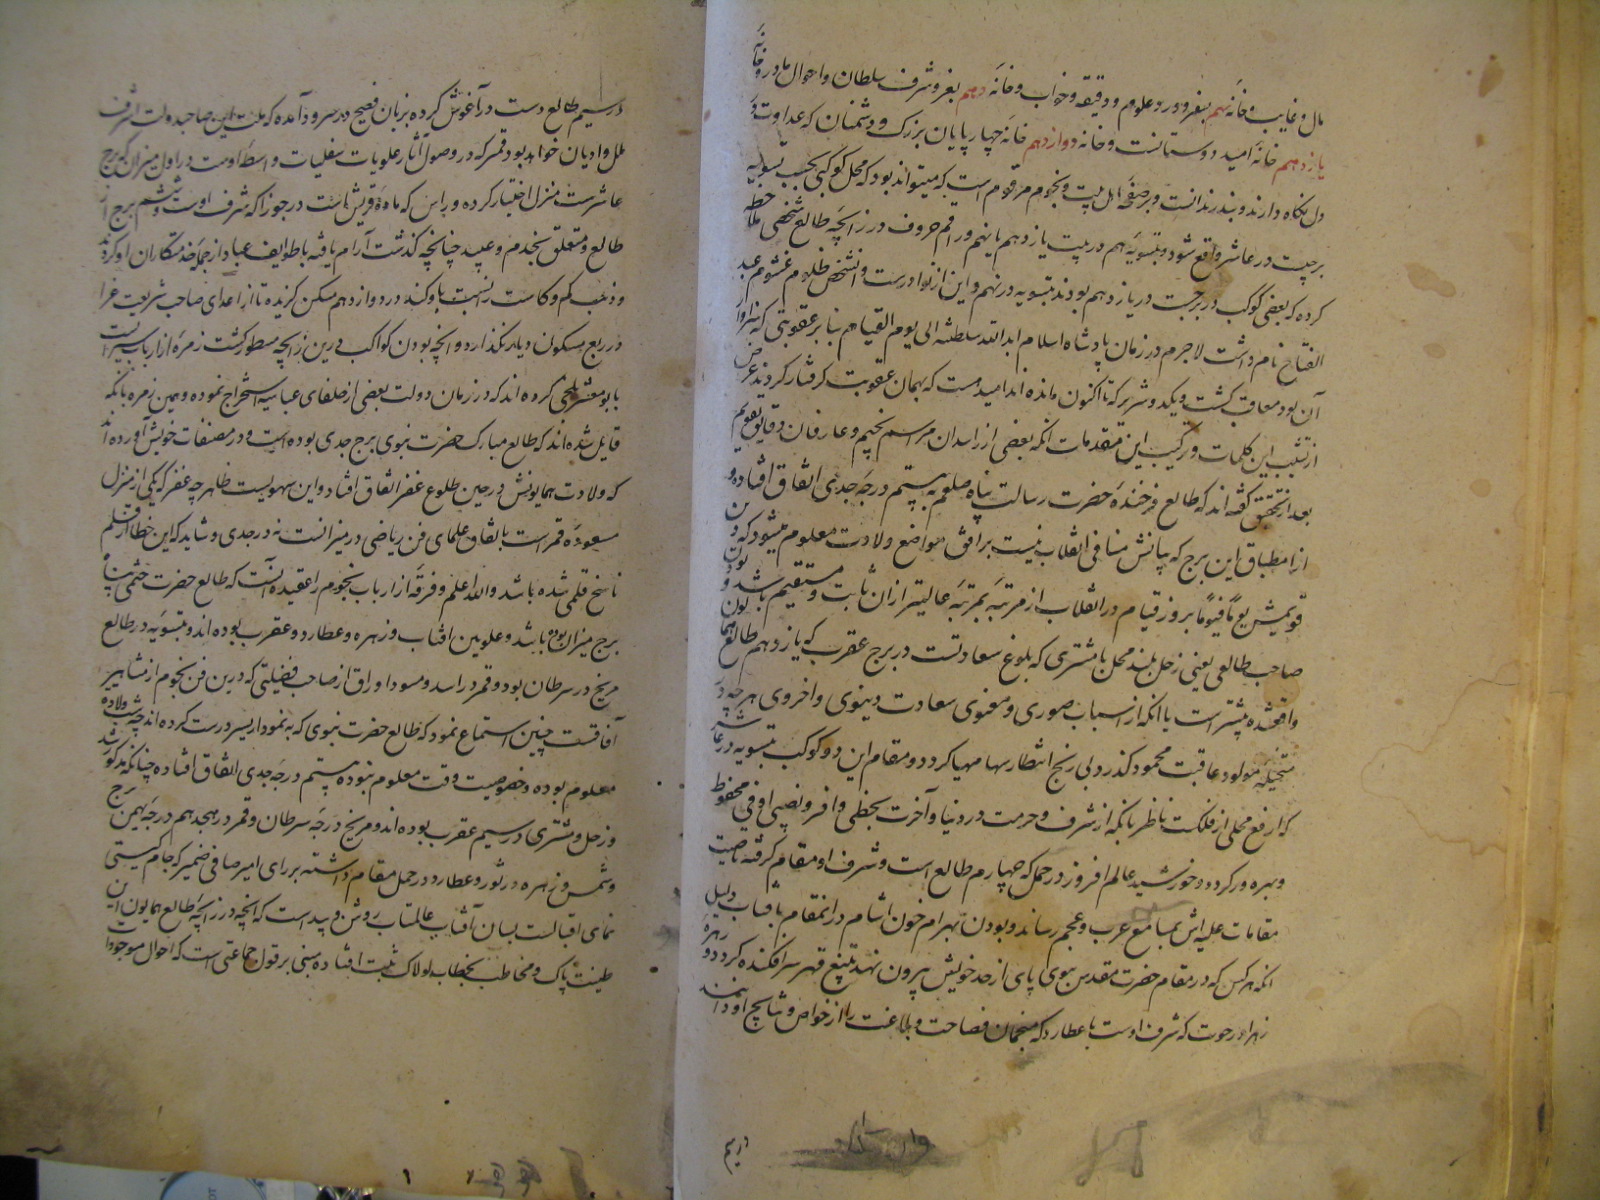 مال و غایب و خانهٔ نهم بسفر و درد و علوم و دقیقه و خواب و خانهٔ دهم بعز و شرف سلطان و احوال مادر و خانهٔ
یازدهم خانهٔ امید دوستانست و خانه دوازدهم خانهٔ چهار پایان بزرگ و دشمنان که عداوت در
دل نگاه دارند و بر صفحهٔ اهل نجوم مرقوم است که میتواند بود که محل کوکبی بحسب تسویه
برجیست در عاشر واقع شود و بتسویه هم در بیت یازدهم یا نهم و راقم حروف در زایچهٔ طالع شخصی ملاحظه
کرده که بعضی کوکب در برجست در یازدهم بودند بتسویه در نهم و این از نوادرست و آن شخص ظلوم غشوم عبد
الفتاح نام داشت لاجرم در زمان پادشاه اسلام ابد الله سلطنته الی یوم القیام بنا بر عقوبتی که سزاوار
آن بود معاقب گشت و یکدو شریر که تا اکنون مانده اند امیدست که بهمان عقوبت گرفتار گردند غرض
از تشبیب این کلمات و ترکیب این مقدمات آنکه بعضی از راسدان مراسم تنجیم و عارفان دقایق تقویم
بعد از تحقیق گفته اند که طالع فرخندهٔ حضرت رسالت پناه صلعم به بیستم درجهٔ جدی اتفاق افتاده و
از انطباق این برج که بیانش منافی انقلاب نیست بر افق مواضع ولادت معلوم میشود که دین
قویمش یوماً فیوماً بروز قیام در انقلاب از مرتبه بمرتبهٔ عالیتر از آن ثابت و مستقیم باشد و بودن
صاحب طالعی یعنی زحل بلند محل با مشتری که بلوغ سعادتست در برج عقرب که یازدهم طالع همایون
واقعشده مبشر است با آنکه از اسباب صوری و معنوی سعادت دنیوی و اخروی هرچه در
متخیلهٔ مولود عاقبت محمود گذرد بی رنج انتظار مهیا گردد و مقام این دو کوکب بتسویه در عاشر
که ارفع محلی از فلکست ناظر بآنکه از شرف و حرمت در دنیا و آخرت بحظی وافر و نصیبی اوفی محفوظ
و بهره ور گردد و خورشید عالم افروز در حمل که چهارم طالع است و شرف او مقام گرفته تا صیت
مقامات علیه اش بمسامع عرب و عجم رساند و بودن بهرام خون آشام در آنمقام با آفتاب دلیل
آنکه هر کس که در مقام حضرت مقدس نبوی پای از حد خویش بیرون نهد بتیغ قهر سرافکنده گردد و زهرهٔ
زهرا در حوت که شرف اوست با عطارد که منجمان فصاحت و بلاغت را از خواص و نتایج او دانند
در سیم طالع دست در آغوش کرده بزبان فصیح در سرود آمده که ملت این صاحب دولت اشرف
ملل و ادیان خواهد بود و قمر که در وصول آثار علویات بسفلیات واسطه اوست در اول میزان که برج
عاشرست منزل اختیار کرده و راس که مادهٔ قویش است در جوزا که شرف اوست و ششم برج از
طالع و متعلق بخدم و عبید چنانچه گذشت آرام یافته تا طوایف عباد از جمله خدمتکاران او گردند
و ذنب کم و کاست را نسبت باو کنند در دوازدهم مسکن گزیده تا از اعدای صاحب شریعت غرا
در ربع مسکون دیار نگذارد و آنچه بودن کواکب درین زایچه مسطور گشت زمرهٔ از ارباب سیر است
با بو معشر بلخی کرده اند که در زمان دولت بعضی از خلفای عباسیه استخراج نموده و همین زمره بآنکه
قایل شده اند که طالع مبارک حضرت نبوی برج جدی بوده است و در مصنفات خویش آورده اند
که ولادت همایونش در حین طلوع غفر اتفاق افتاد و این سهویست ظاهر چه غفر که یکی از منزل
مسعودهٔ قمر است باتفاق علمای فن ریاضی در میزانست نه در جدی و شاید که این خطا از قلم
ناسخ قلمی شده باشد والله اعلم و فرقهٔ از ارباب نجوم را عقیده آنست که طالع حضرت ختمی پناه
برج میزان بوده باشد و علویین آفتاب و زهره و عطارد و عقرب بوده اند و بتسویه در طالع
مریخ در سرطان بود و قمر در اسد و مسود اوراق از صاحب فضیلتی که درین فن نجوم از مشاهیر
آفاقست چنین استماع نمود که طالع حضرت نبوی که بنمودار یسیر درست کرده اند چه شب ولاده
معلوم بوده و خصوصیت وقت معلوم نبوده بیستم درجهٔ جدی اتفاق افتاده چنانکه مذکور شد
و زحل و مشتری در سیم عقرب بوده اند و مریخ درجهٔ سرطان و قمر در هجدهم درجهٔ همین برج
و شمس و زهره در ثور و عطارد در حمل مقام داشته بر رای امیر صافی ضمیر که جام گیتی
نمای اقبالست بسان آفتاب عالمتاب روشن و پیداست که آنچه در زایچهٔ طالع همایون این
طینت پاک و مخاطب بخطاب لولاک ثبت افتاده مبنی بر قول جماعتی است که احوال موجودات
در سیم